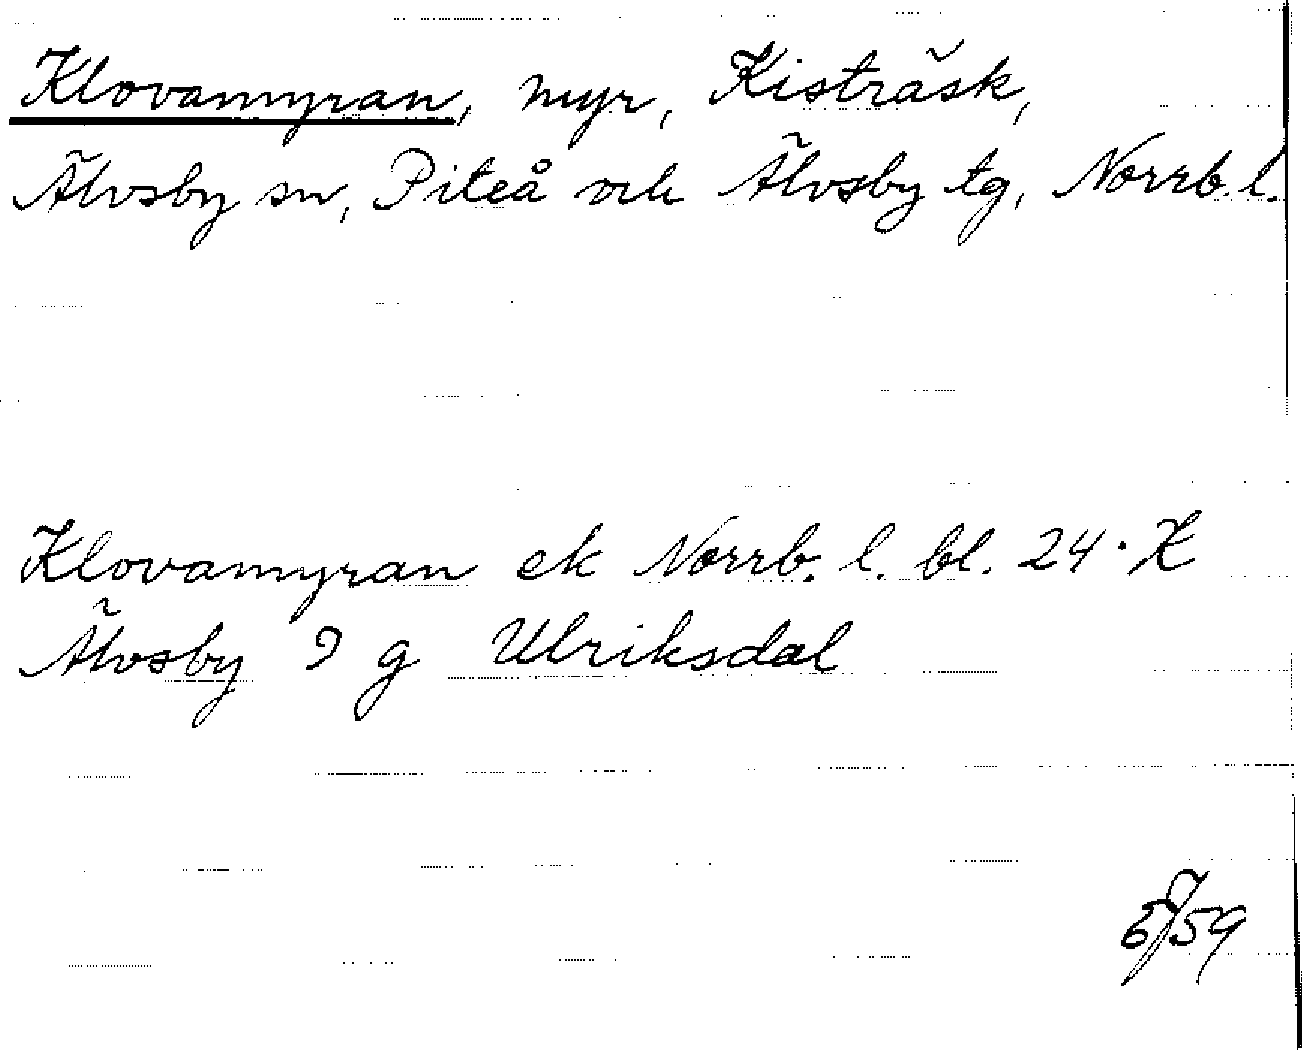 Klovamyran, myr, Kisträsk,
Älvsby sn, Piteå och Älvsby tg, Norrb. l.
Klovamyran ek Norrb. l. bl. 24. X
Älvsby 9 g Ulriksdal